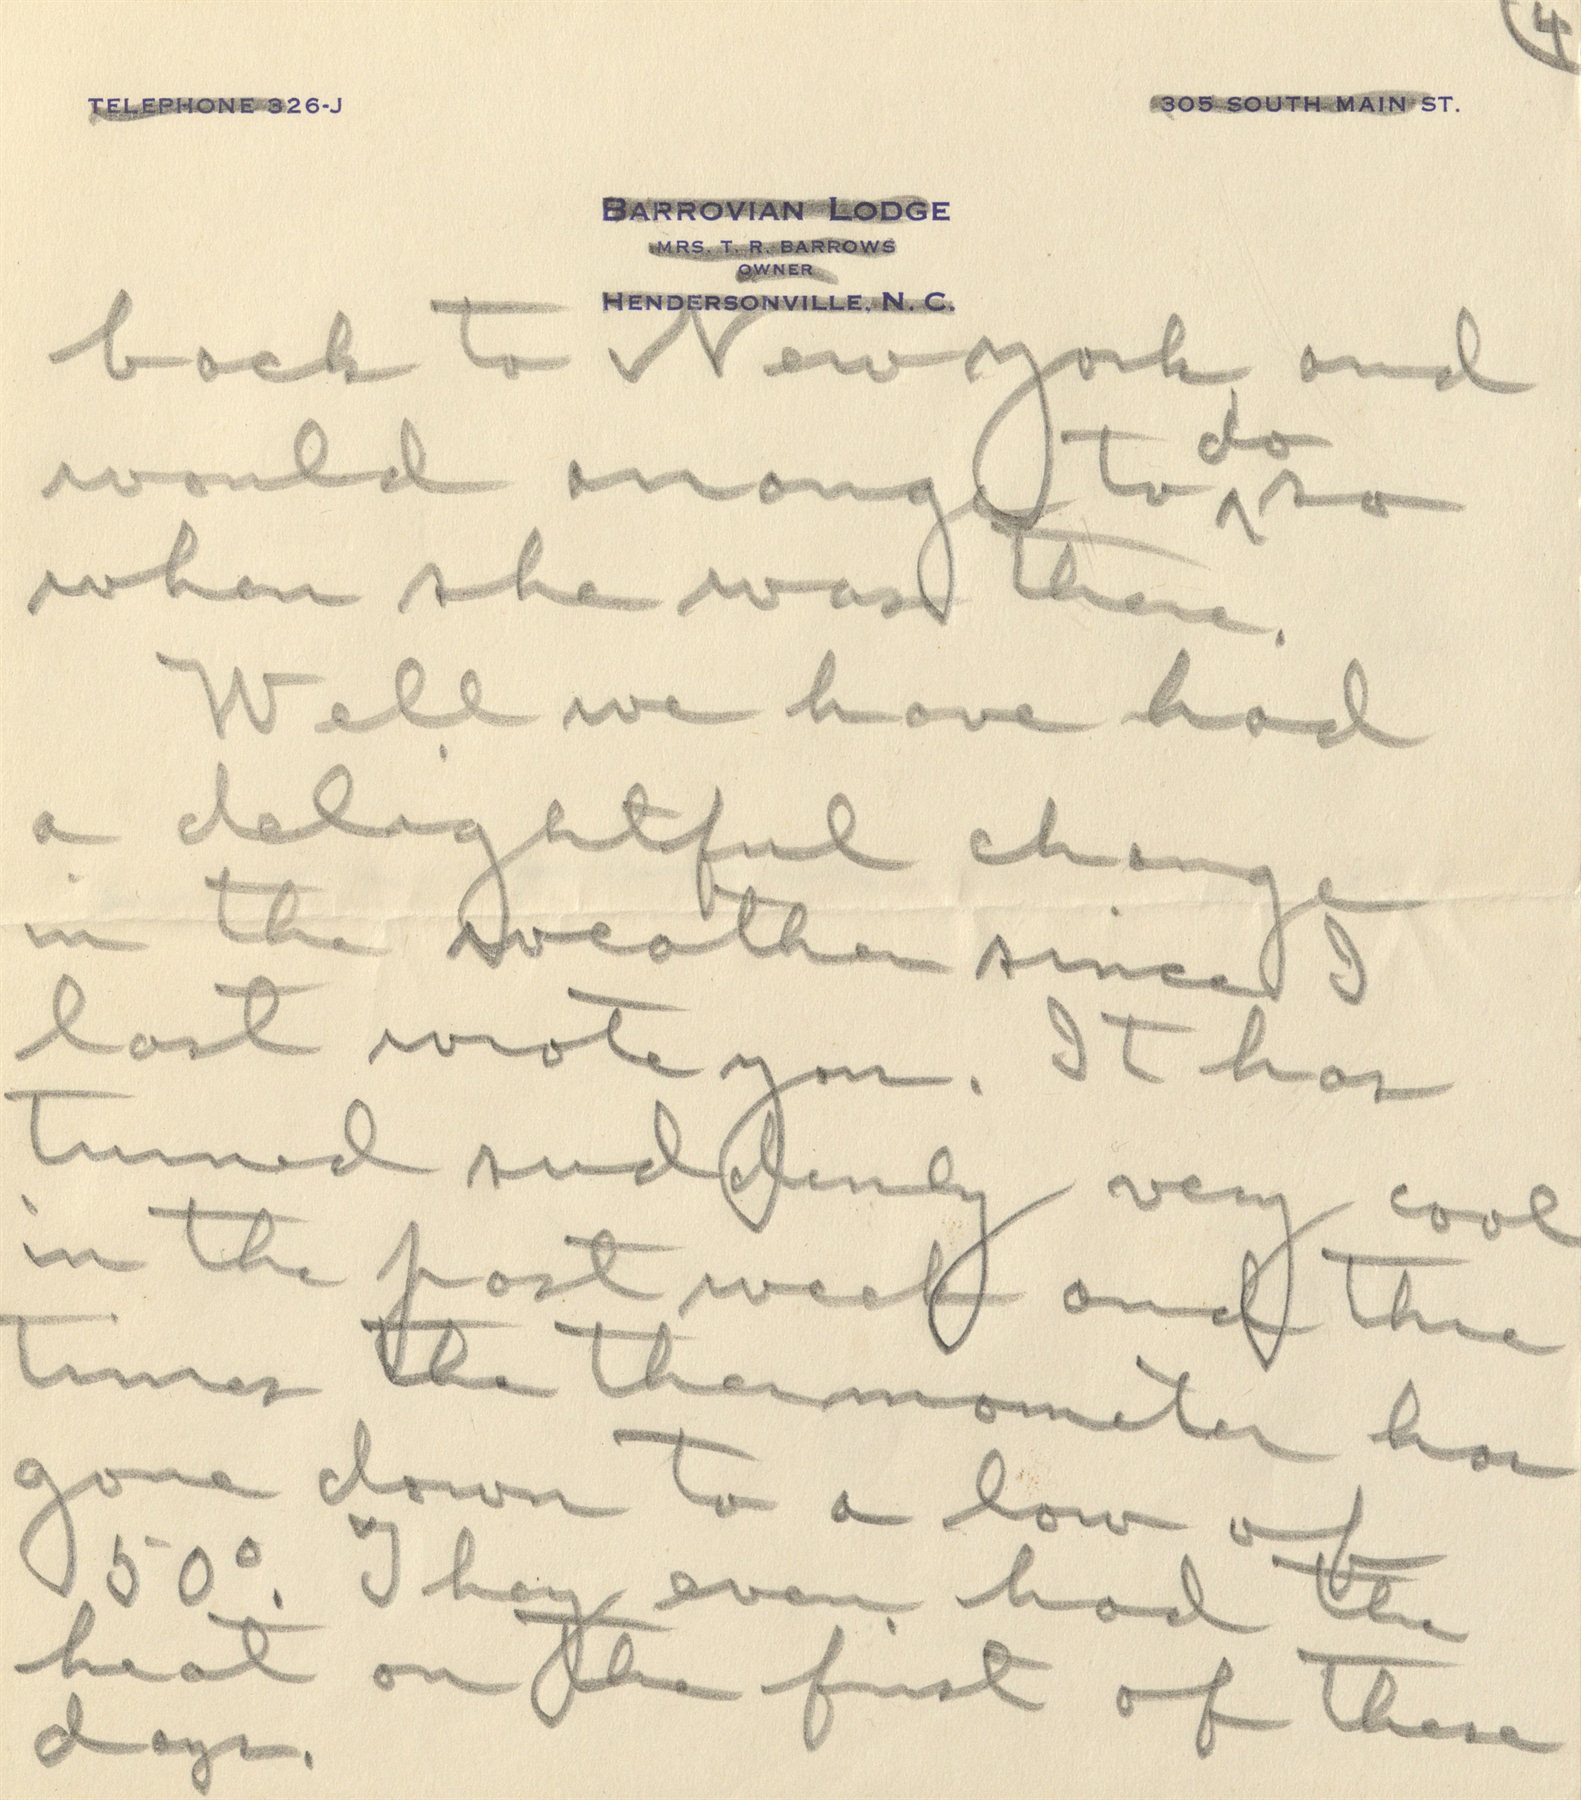 4
TELEPHONE 326-J
305 SOUTH MAIN ST.
BARROVIAN LODGE
MRS. T. R. BARROWS
OWNER
HENDERSONVILLE, N. C.
back to New York, and
would arrange to do so
when she was there.
Well we have had
a delightful change
in the weather since I
last wrote you. It has
turned suddenly very cool
in the past week and three
times the thermometer has
gone down to a low of
50°. They even had the
heat on the first of these
days.